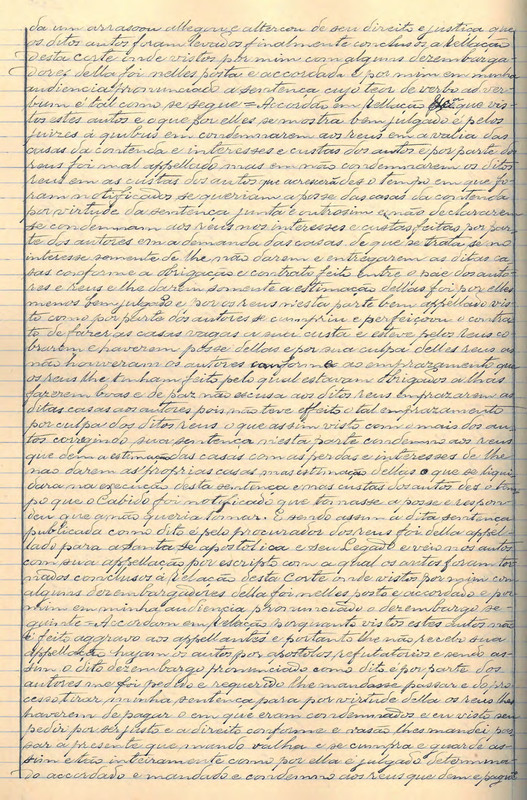 da um arrasoou allegou e altercou de seu direito e justiça que
os ditos autos foram levados finalmente conclusos a Rellação
desta corte onde vistos por mim com alguns dezembarga-
dores della foi nelles posta e accordada e por mim em minha
audiencia pronunciado a sentença cujo teor de verbo ad ver-
bum é tal como se segue = Accordão em Rellação que vis-
tos estes autos e o que por elles se mostra bem julgado é pelos
juizes à quibus em condemnarem aos reus em a valia das
casas da contenda e interesses e custas dos autos e por parte dos
reus foi mal appellado mas em não condemnarem os ditos
reus em as custas dos autos que acresceram des o tempo em que fo-
ram notificados se queriam a posse das casas da contenda
por virtude da sentença junta e outrosim e não declararem
se condemnam aos reus nos interesses e custas feitas por par-
te dos autores em a demanda das casas de que se trata se no
interesse somente de lhe não darem e entregarem as ditas ca-
sas conforme a obrigação e contrato feito entre o pae dos auto-
res e reus e lhe darem somente a estimação dellas foi por elles
menos bem julgado e por os reus n'esta parte bem appellado vis-
to como por parte dos autores se cumpriu e perfeiçoou o contra-
to de fazer as casas vagas a sua custa e esteve pelos reus co-
brarem e haverem posse dellas e por sua culpa delles reus as
não houveram os autores conforme ao emprazamento que
os reus lhe tinham feito pelo qual estavam obrigados a lhas
fazerem boas e de paz não escusa aos ditos reus emprazarem as
ditas casas aos autores pois não teve effeito o tal emprazamento
por culpa dos ditos reus o que assim visto com o mais dos au-
tos corregindo sua sentença n'esta parte condemno aos reus
que dem a estimação das casas com as perdas e interesses de lhe
não darem as proprias casas mas estimação dellas o que se liqui-
dara na execução desta sentença e nas custas dos autos des o tem-
po que o Cabido foi notificado que tomasse a posse e respon-
deu que a não queria tomar. E sendo assim a dita sentença
publicada como dito é pelo procurador dos reus foi della appel-
lado para a Santa Sé apostolica e seu Legado e veio nos autos
com sua appellação por escripto com a qual os autos foram tor-
nados conclusos à Relação desta Corte onde vistos por mim com
alguns dezembargadores della foi nelles posto e accordado e por
mim em minha audiencia pronunciado o dezembargo se-
guinte = Accordam em Relação porquanto vistos estes autos não
é feito aggravo aos appellantes e portanto lhe não recebo sua
appellação hajam os autos por apostolos refutatorios e sendo as-
sim o dito dezembargo pronunciado como dito é por parte dos
autores me foi pedido e requerido lhe mandasse passar e do pro-
cesso tirar minha sentença para por virtude della os reus lhe
haverem de pagar o em que eram condemnados e eu visto seu
pedir por ser justo e a direito conforme e rasão lhes mandei pas-
sar a presente que mando valha e se cumpra e guarde as-
sim e tão inteiramente como por ella é julgado determina-
do accordado e mandado e condemno aos reus que dem e paguem